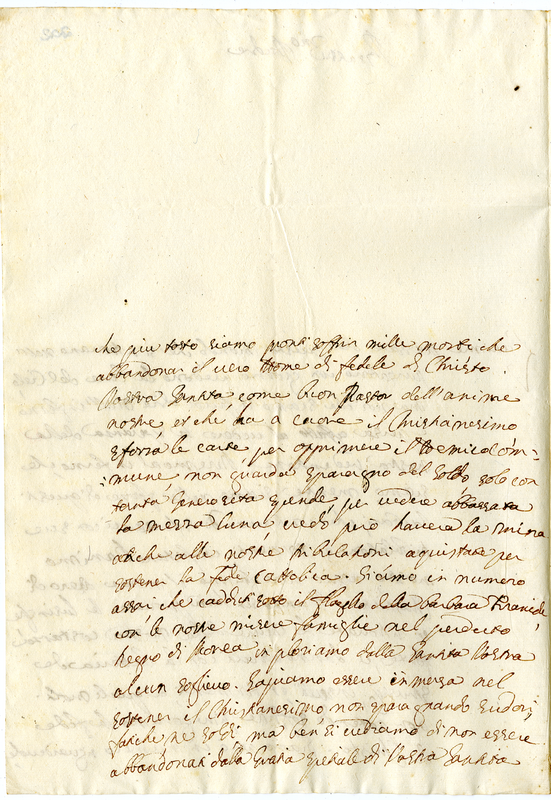 che piu tosto siamo pronti soffrir mille morti che
abbandonar il vero Nome di fedele di Christo.
Vostra Santita come buon Pastor dell'anime
nostre et ché ha a cuore il Christianesimo
sforzá le carte per opprimere il Nemico com:
:mune, non guarda sparagno del soldo solo con
tanta generosita spende per vedere abbassata
la mezza luna però havera la mira
anche alle nosthe tribilationi aquistate per
sostener la fede Cattolica. Siamo in numero
assai che cadduti sotto il flagello della barbara Tirannide
con le nostre misere famiglie nel perduto
Regno di Morea inploriamo dalla Santita Vostra
alcun sollievo. Sapiamo essere inmersa nel
sostener il Christianesimo non grandi sudori
ne soldi, ma ben si di non essere
abbandonati dalla Grazia spetiale di Vostra Santita